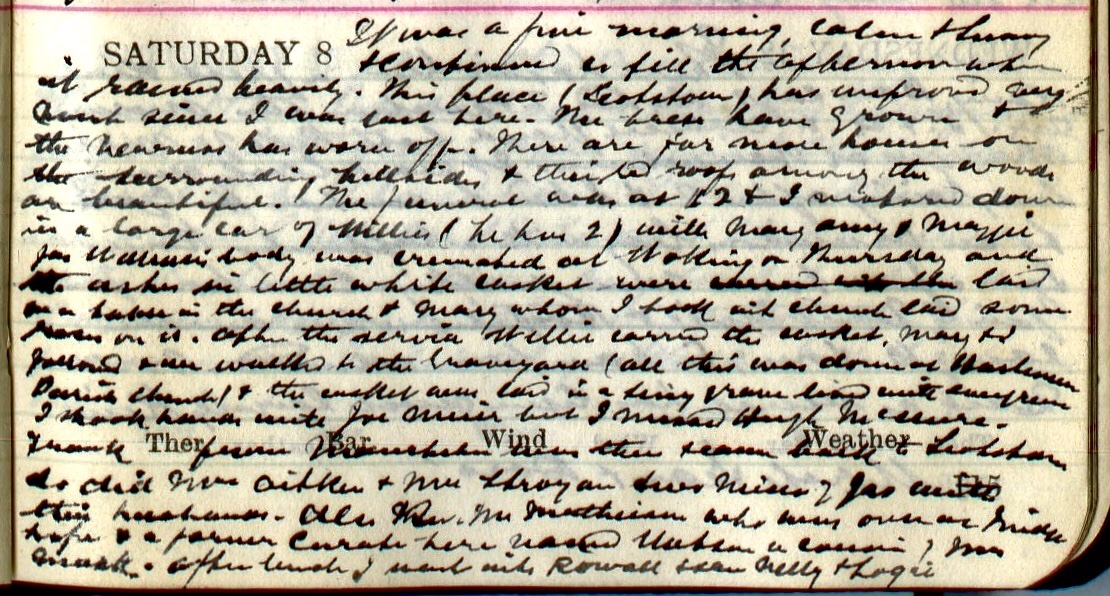 It was a fine morning, calm & sunny
SATURDAY 8
& continued so till the afternoon when
it rained heavily. This place (Scotstown) has improved very
much since I was last here. The trees have grown &
the newness has worn off. There are far more houses on
the surrounding hillsides & their red roofs among the woods
are beautiful. The funeral was at 12 & I motored down
in a large car of Willie's (he has 2) with Mary Amy & Maggie
Jas body was cremated at Woking on Thursday and
the ashes in little white casket were laid
on a table in the church & Mary whom I took into church laid some
roses on it. After the service Willie carried the casket, Mary & I
followed & all walked to the Graveyard (all this was done at Haslemere
Parish church) & the casket was laid in a tiny grave lined with evergreen
I shook hands with Joe but I missed Hugh McClure.
Ther Bar Wind Weather
Frank from was there & came back to
So did Mrs Aitken & Mrs two nieces of Jas with
their husbands. Also Rev. Mr Mathieson who was over as
& a former Curate here named Watson a cousin of Mrs
. After lunch I went into & saw Nelly & Logie